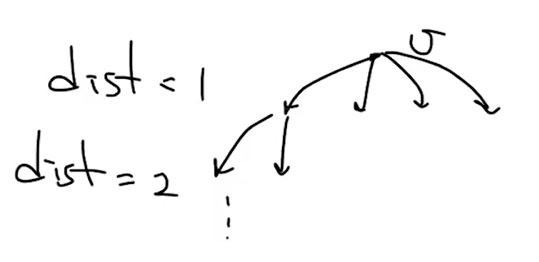 dist = 1
υ
dist = 2